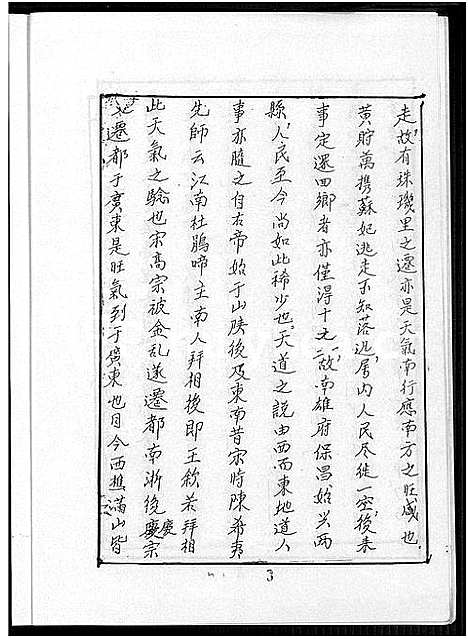 走故有珠璣里之遷亦是天氣南行應南方之旺盛也
黃貯萬携蘇妃逃走不知落迯属内人民尽徙一空後来
事定還回鄉者亦僅得十之一二故南雄府保昌始兴两
縣人民至今尚如此稀少也天道之説由西而東地道人
事亦随之自古帝始于山陕後及東南昔宋時陳希夷
先師云江南杜鵑啼主南人拜相後即王欽若拜相
此天氣之驗也宋髙宗被金乱遂遷都南浙後慶宗
遷都于廣東是旺氣到于廣東也目今西樵滿山皆
3